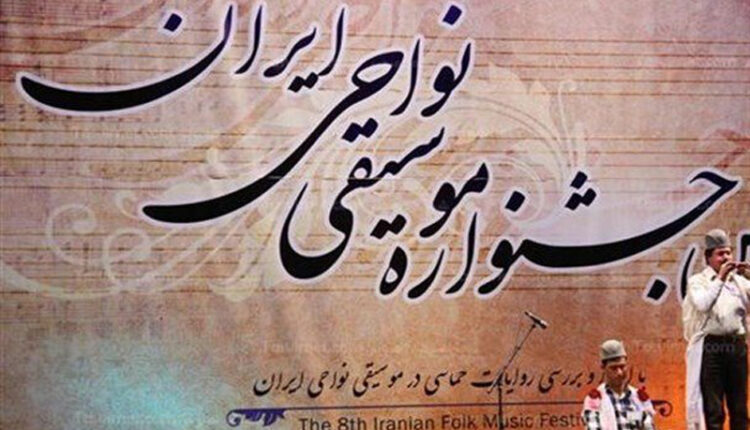 جشنواره موسیقی نواحی ایران
با و بررسی روایات حماسی در موسیقی نواحی ایران
The 8th Iranian Folk Music Festiv